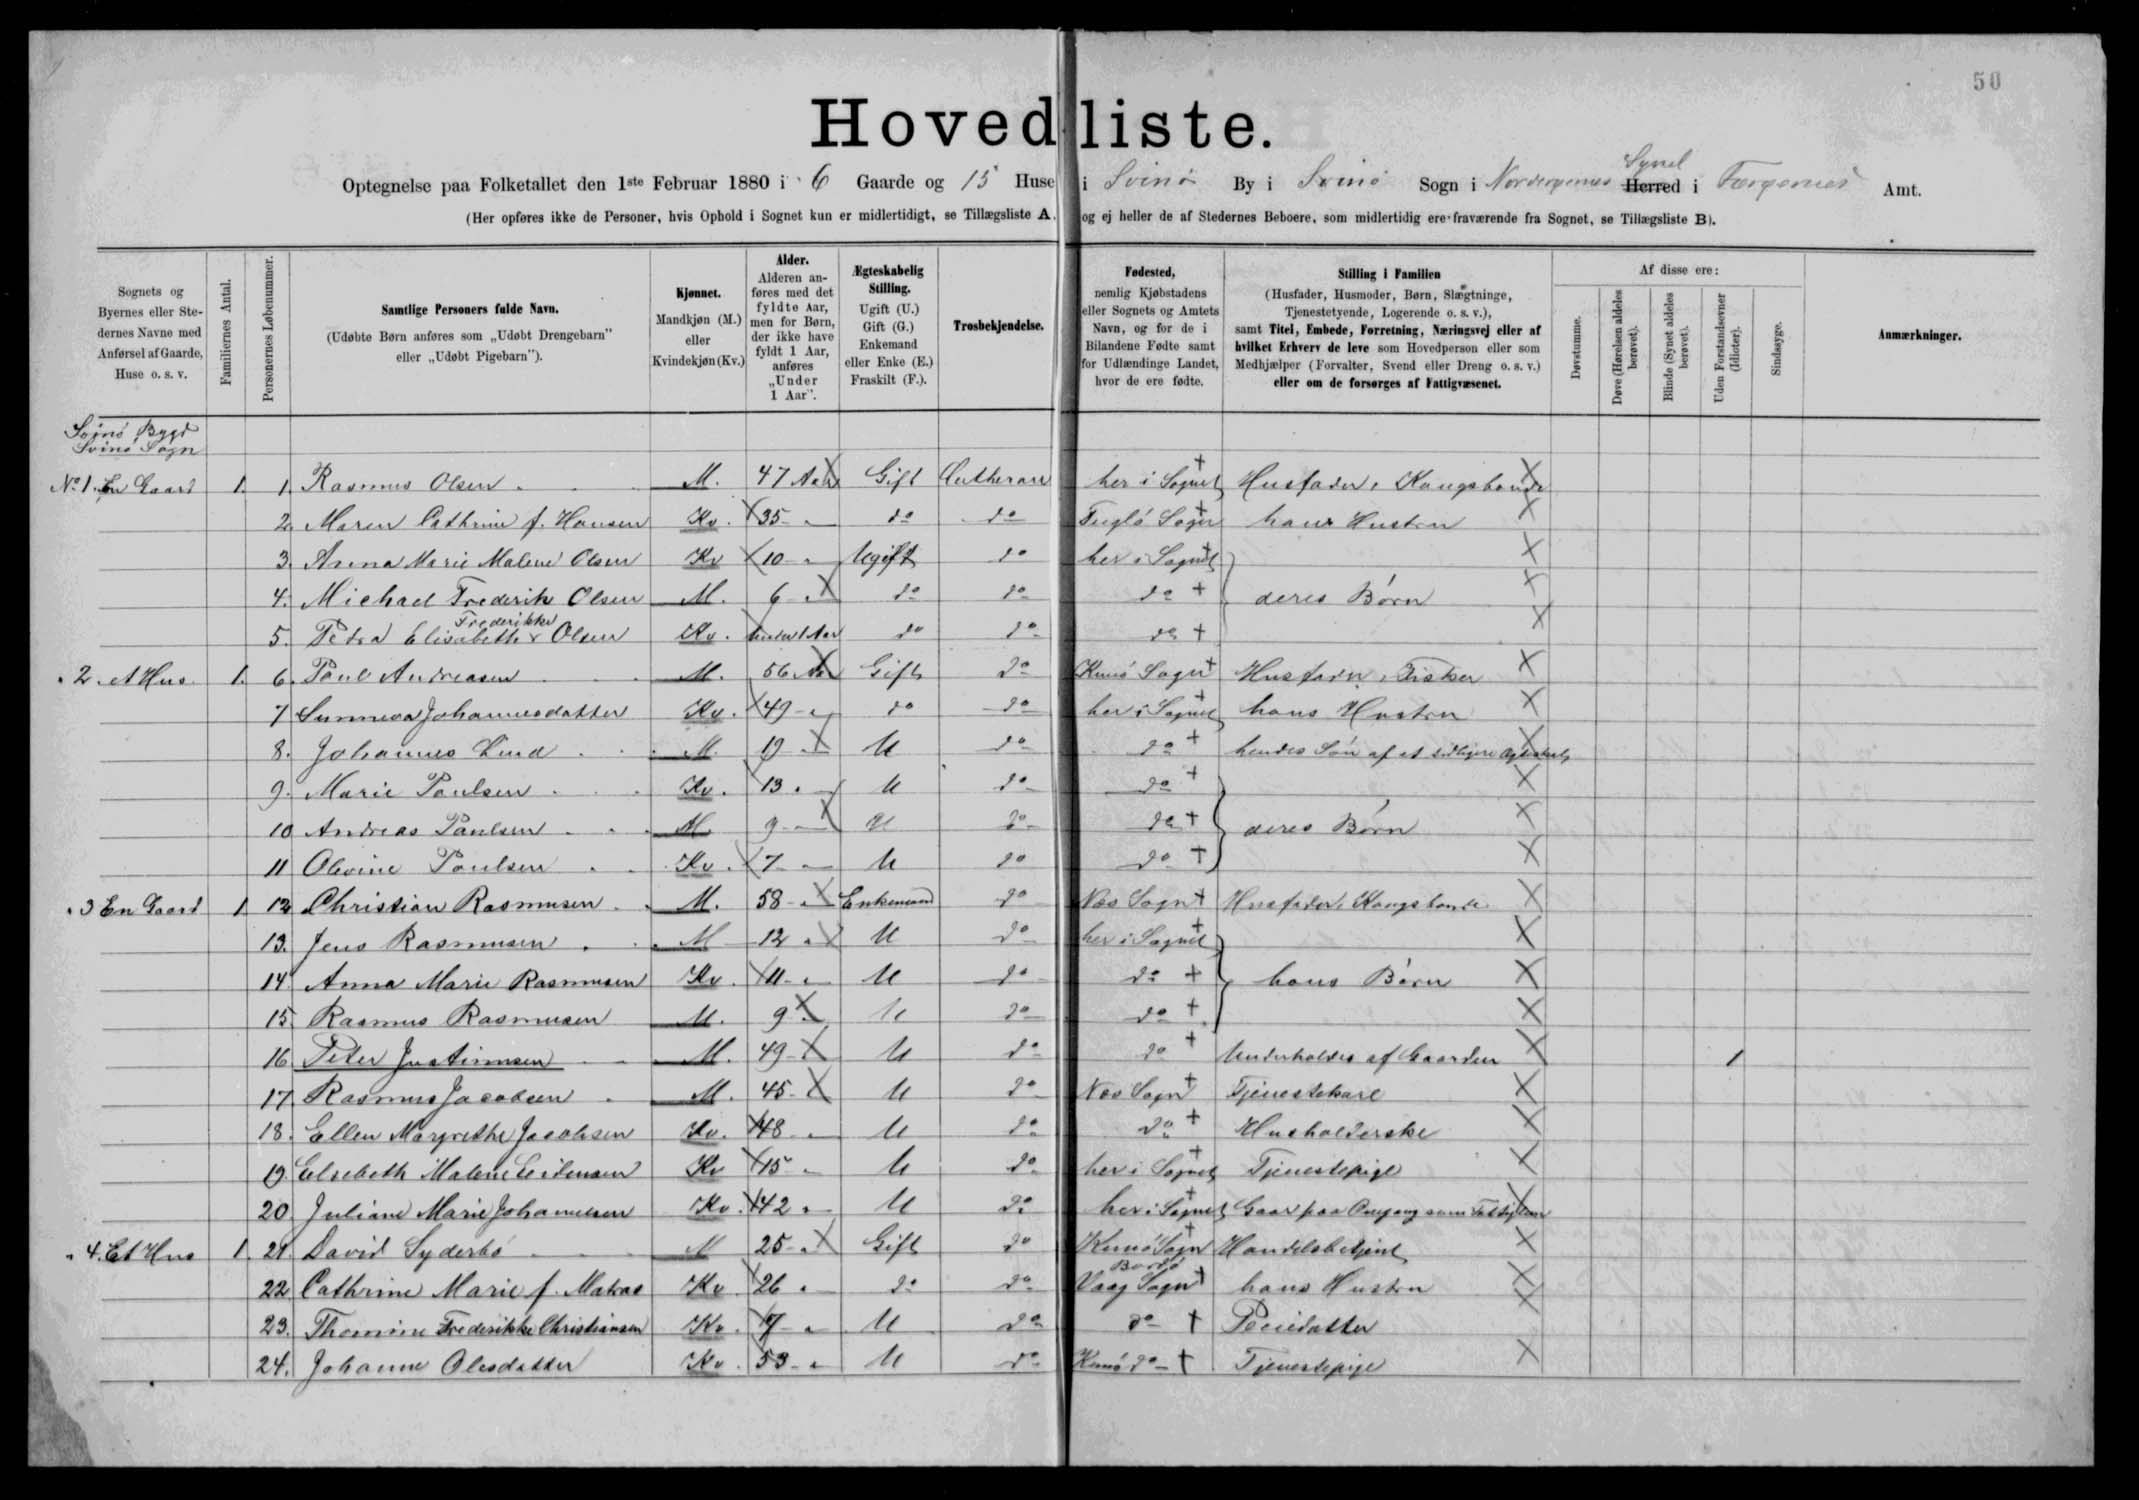 50
Hovedliste.
Optegnelse paa Folketallet den 1ste Februar 1880 i 6 Gaarde og 15 Huse i Svinø By i Svinø Sogn i Norderøernes Syssel Herred i Færøernes Amt.
(Her opføres ikke de Personer, hvis Ophold i Sognet kun er midlertidigt, se Tillægsliste A. og ej heller de af Stedernes Beboere, som midlertidig ere fraværende fra Sognet, se Tillægsliste B).
Sognets og Byernes eller Stedernes Navne med Anførsel af Gaarde, Huse o. s. v.
Familiernes Antal.
Personernes Løbenummer.
Samtlige Personers fulde Navn.
(Udøbte Børn anføres som „Udøbt Drengebarn" eller „Udøbt Pigebarn").
Kjønnet.
Mandkjøn (M.) eller Kvindekjøn (Kv.)
Alder.
Alderen anføres med det fyldte Aar, men for Børn, der ikke have fyldt 1 Aar, anføres „Under 1 Aar".
Ægteskabelig Stilling.
Ugift (U.) Gift (G.) Enkemand eller Enke (E.) Fraskilt (F.).
Trosbekjendelse.
Fødested,
nemlig Kjøbstadens eller Sognets og Amtets Navn, og for de i Bilandene Fødte samt for Udlændinge Landet, hvor de ere fødte.
Stilling i Familien
(Husfader, Husmoder, Børn, Slægtninge, Tjenestetyende, Logerende o. s. v.), samt Titel, Embede, Forretning, Næringsvej eller af hvilket Erhverv de leve som Hovedperson eller som Medhjælper (Forvalter, Svend eller Dreng o. s. v.) eller om de forsørges af Fattigvæsenet.
Af disse ere:
Døvstumme.
Døve (Hørelsen aldeles berøvet).
Blinde (Synet aldeles berøvet).
Uden Forstandsevner (Idioter).
Sindssyge.
Anmærkninger.
Svinø Bygd
Svinø Sogn
No 1. En Gaard 1. 1. Rasmus Olsen M. 47 Aar Gift Lutheran her i Sognet Husfader, Kongsbonde
2. Maren Cathrine f. Hansen Kv. 35 do do Fuglø Sogn hans Hustru
3. Anna Marie Malene Olsen Kv 10 Ugift do her i Sognet
4. Michael Frederik Olsen M. 6 do do do deres Børn
5. Petra Elisabeth Frederikke Olsen Kv. under 1 Aar do do do
2. Et Hus 1. 6. Poul Andreasen M. 56 Aar Gift do Kunø Sogn Husfader, Fisker
7 Sunneva Johannesdatter Kv. 49 do do her i Sognet hans Hustru
8. Johannes Lind M. 19 U do do hendes Søn af et tidligere Ægteskab
9. Marie Poulsen Kv. 13 U do do
10 Andreas Poulsen M 9 U do do deres Børn
11 Olevine Poulsen Kv. 7 U do do
3 En Gaard 1 12 Christian Rasmusen M. 58 Enkemand do Næs Sogn Husfader, Kongsbonde
13. Jens Rasmusen M 12 U do her i Sognet
14. Anna Marie Rasmusen Kv. 11 U do do hans Børn
15. Rasmus Rasmusen M. 9 U do do
16. Peter Justinusen M. 49 U do do Underholdes af Gaarden 1
17. Rasmus Jacobsen M. 45 U do Næs Sogn Tjenestekarl
18. Ellen Margrethe Jacobsen Kv. 48 U do do Husholderske
19. Elsebeth Malene Kv 15 U do her i Sognet Tjenestepige
20. Juliane Marie Johannesen Kv. 42 U do her i Sognet Gaar paa Omgang som Fattiglem
4. Et Hus 1. 21. David Syderbø M 25 Gift do Kunø Sogn Handelsbetjent
22 Cathrine Marie f. Matras Kv 26 do do Vaag Sogn Bordø hans Hustru
23. Thomine Frederikke Christiansen Kv. 7 U do do Pleiedatter
24. Johanne Olesdatter Kv. 53 U do Kunø do Tjenestepige